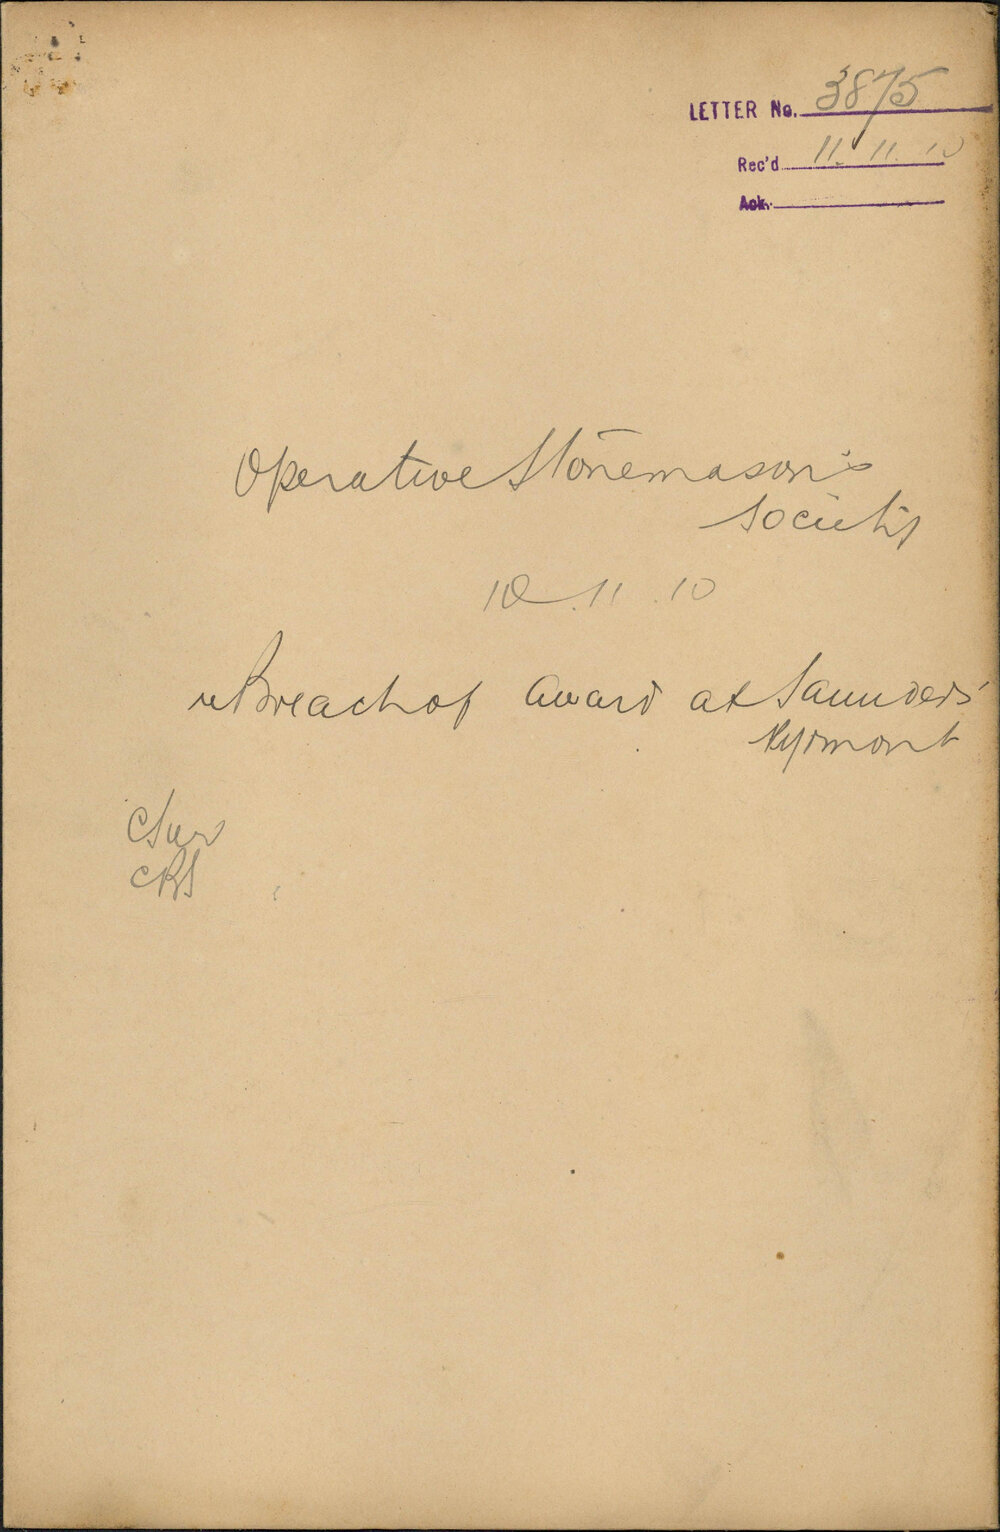 LETTER No. 3875
Rec'd 11. 11. 10
Ack.
Operative Stonemason's
Society
10. 11. 10
re Breach of Award at Saunders'
Pyrmont